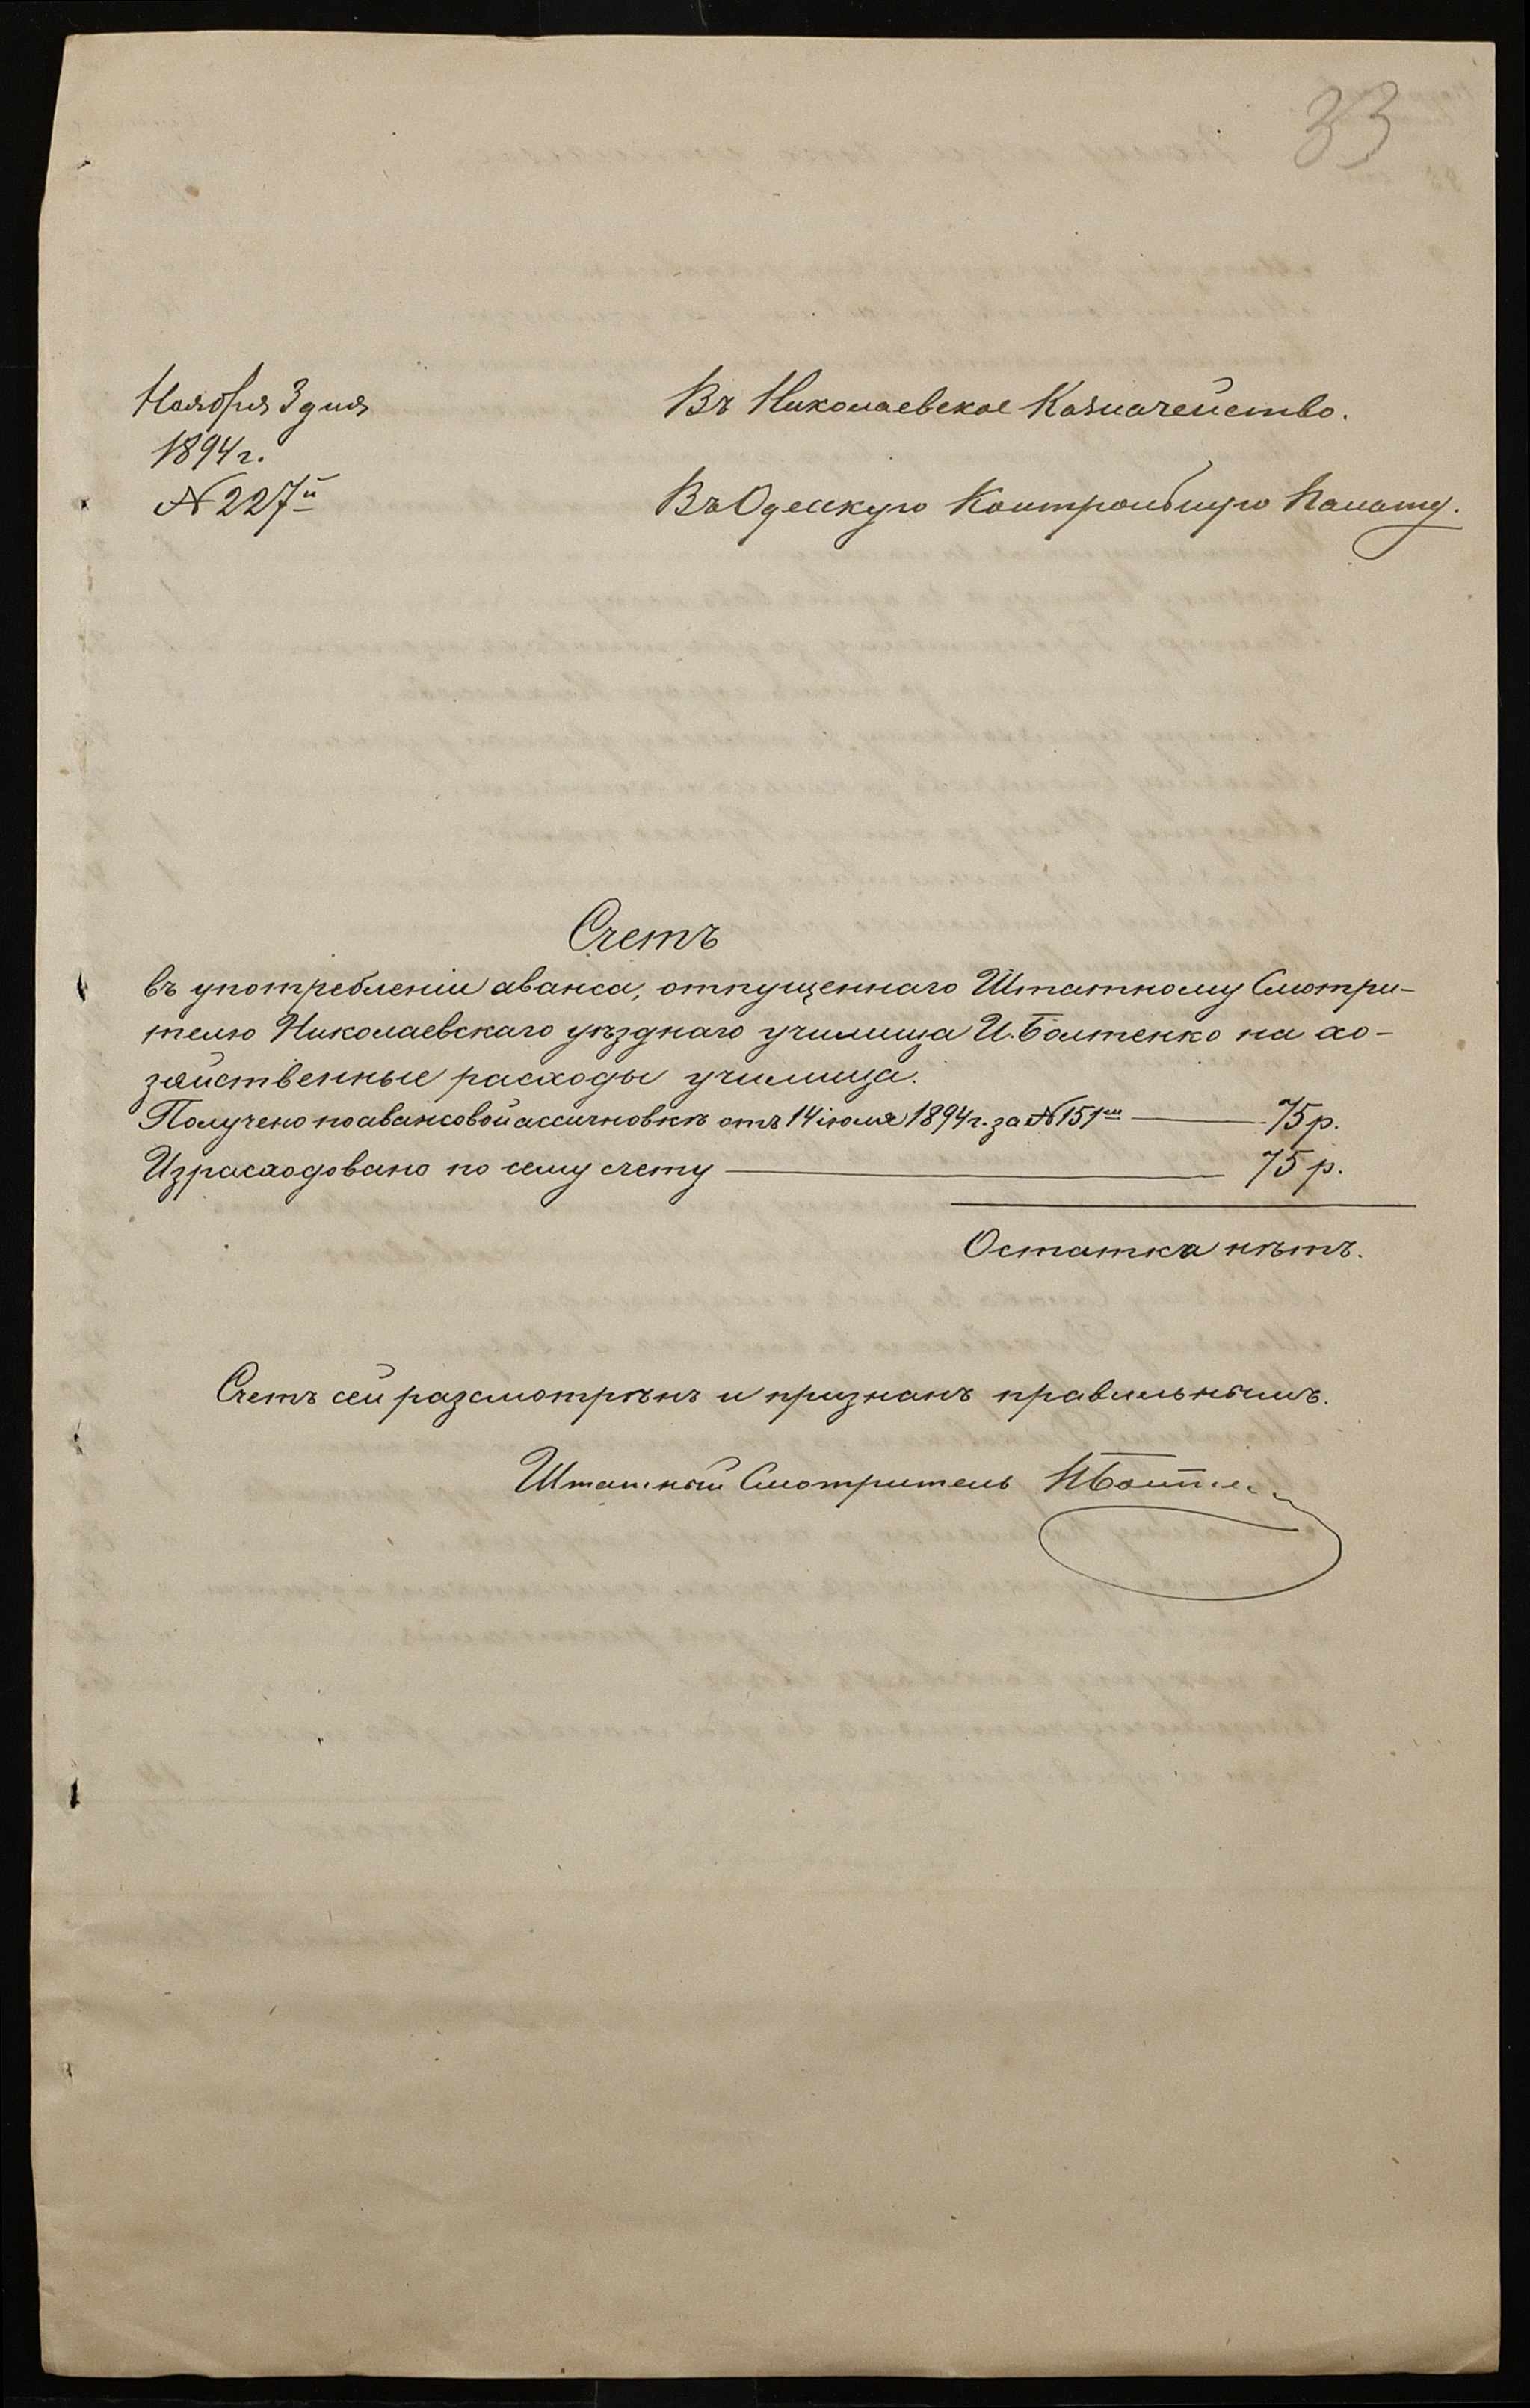 33
Ноября 3 дня
1894 г.
№ 227й
Въ Николаевское Казначейство.
Въ Одесскую Контрольную Палату.
Счетъ
въ употребленіи аванса, отпущеннаго Штатному Смотри-
телю Николаевскаго уѣзднаго училища И. Болтенко на хо-
зяйственные расходы училища.
Получено по авансовой ассигновкѣ отъ 14 іюля 1894 г. за № 151мъ — 75 р.
Израсходовано по сему счету — 75 р.
Остатка нѣтъ.
Счетъ сей разсмотрѣнъ и признанъ правильнымъ.
Штатный Смотритель